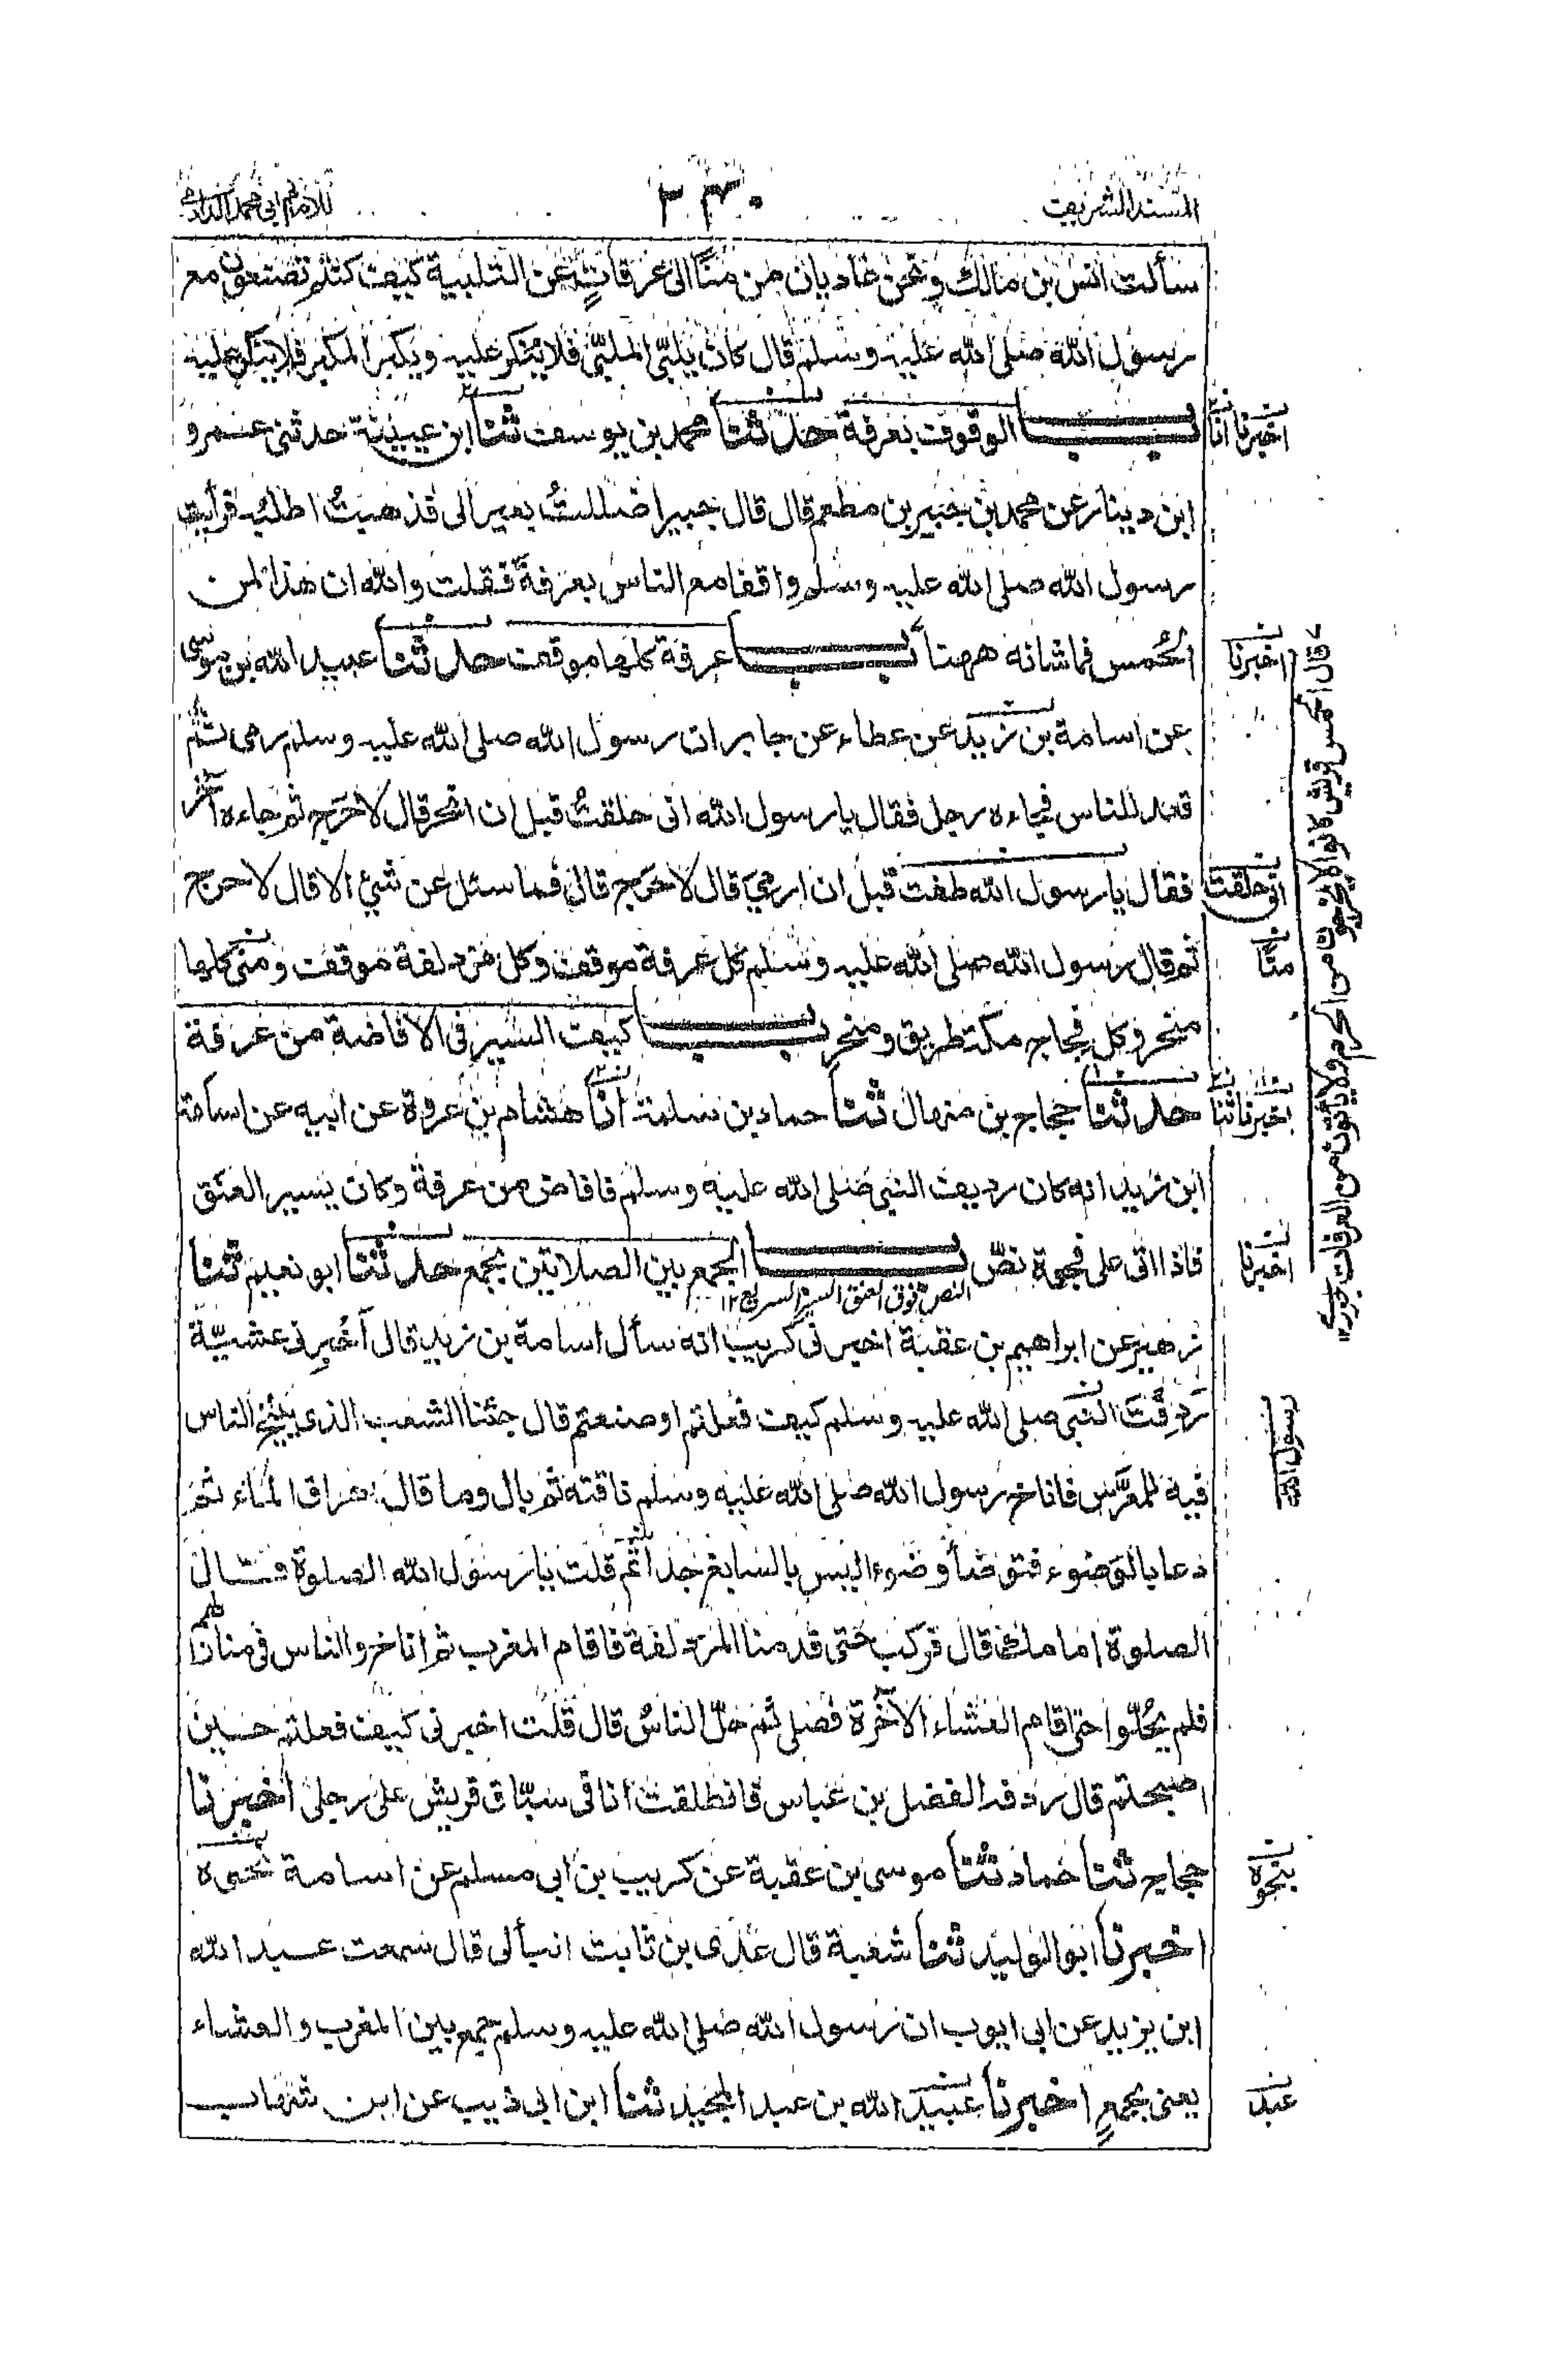 المسند الشريف
٢٤٠
للامام ابى محمد الدارمى
سألت انس بن مالك ونحن غاديان من منًا الى عرفاتٍ عن التلبية كيف كنتم تصنعون مع
رسول الله صلى الله عليه وسلم قال كان يلبّى الملبّى فلا ينكر عليه ويكبر المكبر فلا ينكر عليه
باب الوقوف بعرفة حدثنا محمد بن يوسف ثنا ابن عيينة حدثنى عمرو
ابن دينار عن محمد بن جبير بن مطعم قال قال جبير اضللتُ بعيرا لى فذهبتُ اطلبه فرأيت
رسول الله صلى الله عليه وسلم واقفا مع الناس بعرفة فقلت والله ان هذا لمن
الحُمس فما شانه ههنا باب عرفة كلها موقف حدثنا عبيد الله بن موسى
عن اسامة بن زيد عن عطاء عن جابر ان رسول الله صلى الله عليه وسلم رمى ثم
قعد للناس فجاءه رجل فقال يا رسول الله انى حلقتُ قبل ان انحر قال لا حَرَج ثم جاءه آخر
فقال يا رسول الله طفت قبل ان ارمى قال لا حَرَج قال فما سئل عن شئ الا قال لا حرج
ثم قال رسول الله صلى الله عليه وسلم كل عرفة موقف وكل مزدلفة موقف ومنى كلها
منحر وكل فجاج مكة طريق ومنحر باب كيف السير فى الافاضة من عرفة
حدثنا حجاج بن منهال ثنا حماد بن سلمة انا هشام بن عروة عن ابيه عن اسامة
ابن زيد انه كان رديف النبى صلى الله عليه وسلم فافاض من عرفة وكان يسير العنق
فاذا اتى على فجوة نصّ باب الجمع بين الصلاتين بجمع حدثنا ابو نعيم ثنا
النص فوق العنق السير السريع ١٢
زهير عن ابراهيم بن عقبة اخبرنى كريب انه سأل اسامة بن زيد قال اَخبِرنى عشيّة
رَدِفتَ النبى صلى الله عليه وسلم كيف فعلتم او صنعتم قال جئنا الشعب الذى ينيخ الناس
فيه للمعرَّس فاناخ رسول الله صلى الله عليه وسلم ناقته ثم بال وما قال اهراق الماء ثم
دعا بالوَضوء فتوضأ وضوءا ليس بالسابغ جدا ثم قلت يا رسول الله الصلوة قال
الصلوة امامك قال فركب حتى قدمنا المزدلفة فاقام المغرب ثم اناخ والناس فى منازلهم
فلم يحُلّوا حتى اقام العشاء الآخرة فصلى ثم حلّ الناسُ قال قلت اخبرنى كيف فعلتم حين
اصبحتم قال ردفه الفضل بن عباس فانطلقت انا فى سبّاق قريش على رجلى اخبرنا
حجاج ثنا حماد ثنا موسى بن عقبة عن كريب بن ابى مسلم عن اسامة نحوه
اخبرنا ابو الوليد ثنا شعبة قال عدى بن ثابت انبأنى قال سمعت عبد الله
ابن يزيد عن ابى ايوب ان رسول الله صلى الله عليه وسلم جمع بين المغرب والعشاء
يعنى بجمعٍ اخبرنا عبيد الله بن عبد المجيد ثنا ابن ابى ذيب عن ابن شهاب
اخبرنا انا
اخبرنا
انى حلقت
منًا
اخبرنا ثنا
اخبرنا
رسول الله
بنحوه
عبد
قال الحمس قريش كانوا لا يخرجون من الحرم ولا يأتون من العرفات